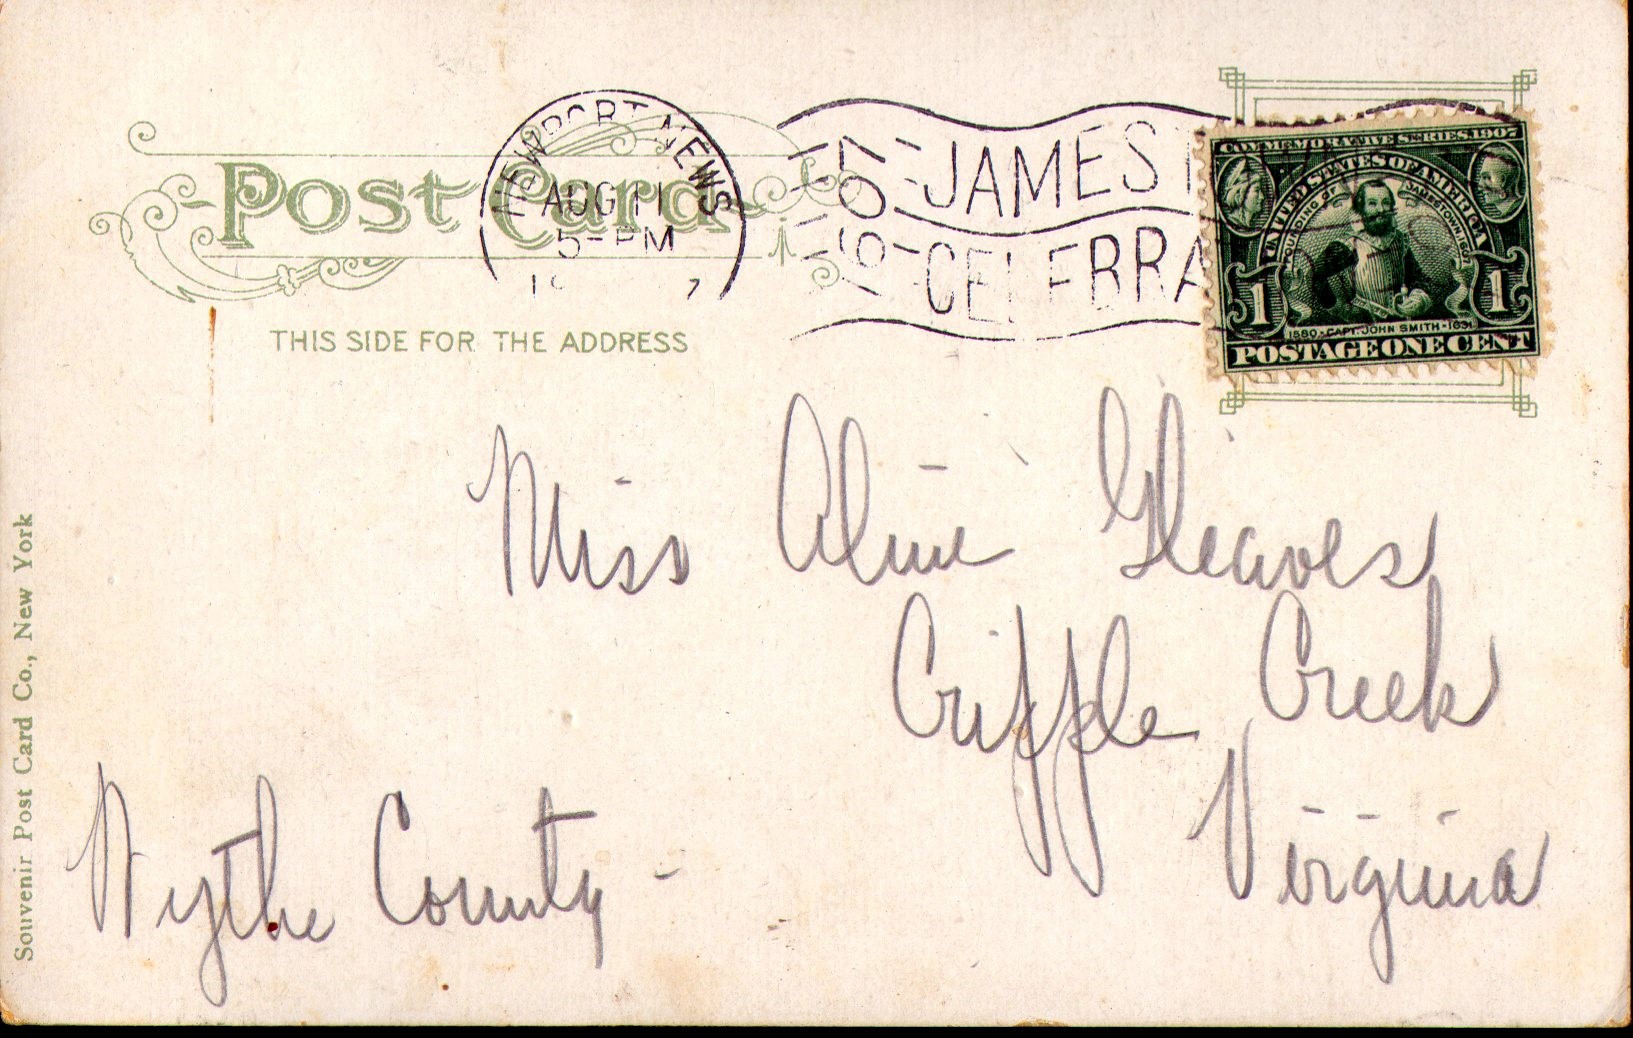 Post Card
THIS SIDE FOR THE ADDRESS
NEWPORT NEWS
AUG 11
5-PM
1607
1907
JAMEST
CELEBRA
COMMEMORATIVE SERIES 1907
UNITED STATES OF AMERICA
FOUNDING OF JAMESTOWN 1607
1580-CAPT. JOHN SMITH-1631
1 1
POSTAGE ONE CENT
Miss Aline Gleaves
Cripple Creek
Virginia
Wythe County -
Souvenir Post Card Co., New York